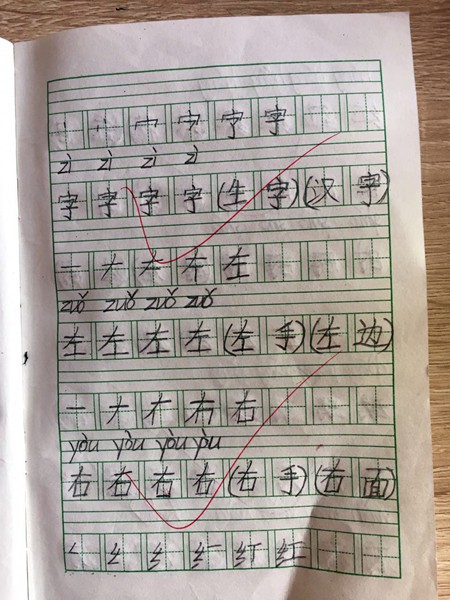 丶 丷 宀 字 字 字
zì zì zì zì
字 字 字 字 (生 字) (汉 字)
一 ナ 𠂇 左 左
zuǒ zuǒ zuǒ zuǒ
左 左 左 左 (左 手) (左 边)
一 ナ 右 右
yòu yòu yòu yòu
右 右 右 右 (右 手) (右 面)
纟 红 红